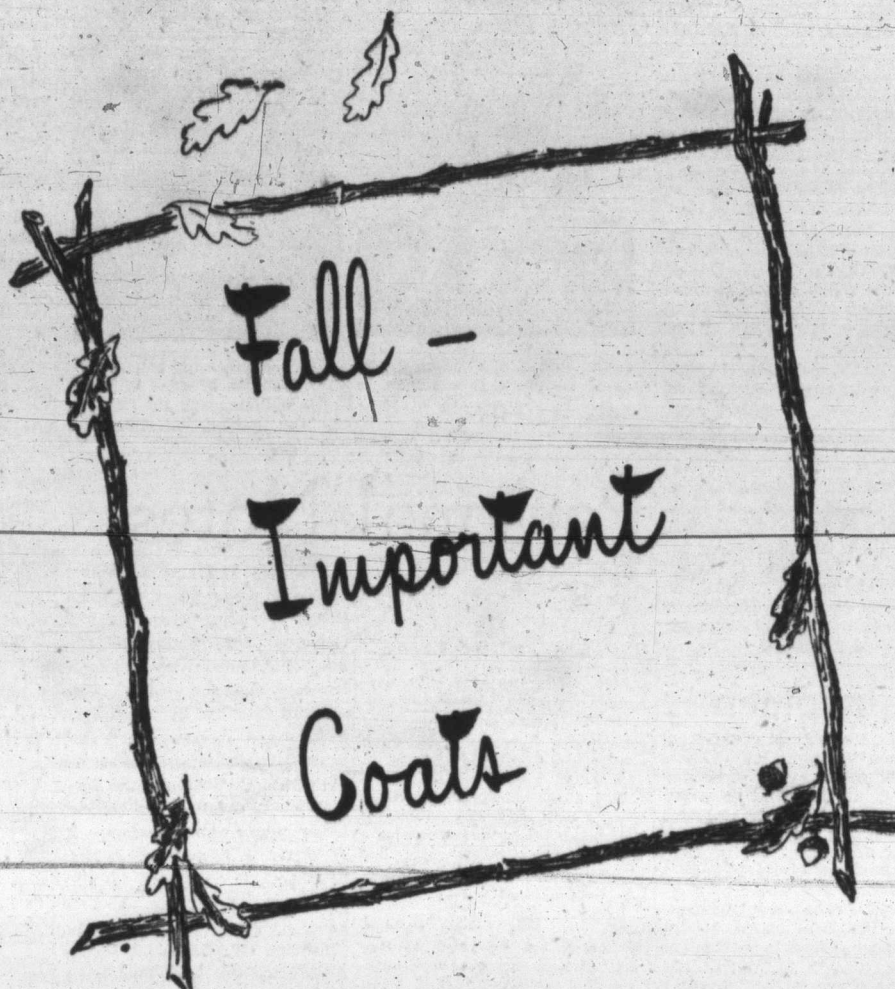 Fall -
Important
Coats